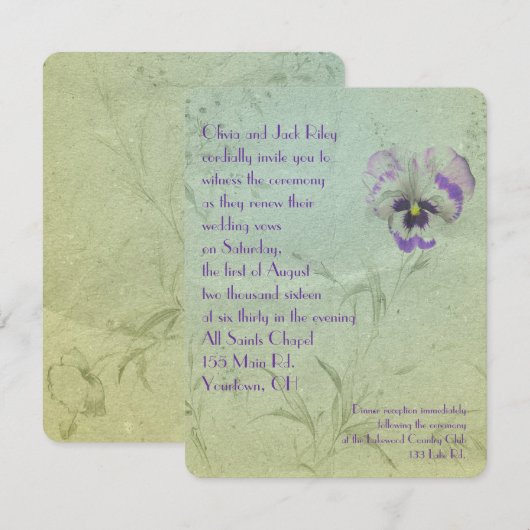 Olivia and Jack Riley
cordially invite you to
witness the ceremony
as they renew their
wedding vows
on Saturday,
the first of August
two thousand sixteen
at six thirty in the evening
All Saints Chapel
155 Main Rd.
Yourtown, OH
Dinner reception immediately
following the ceremony
at the Lakewood Country Club
133 Lake Rd.